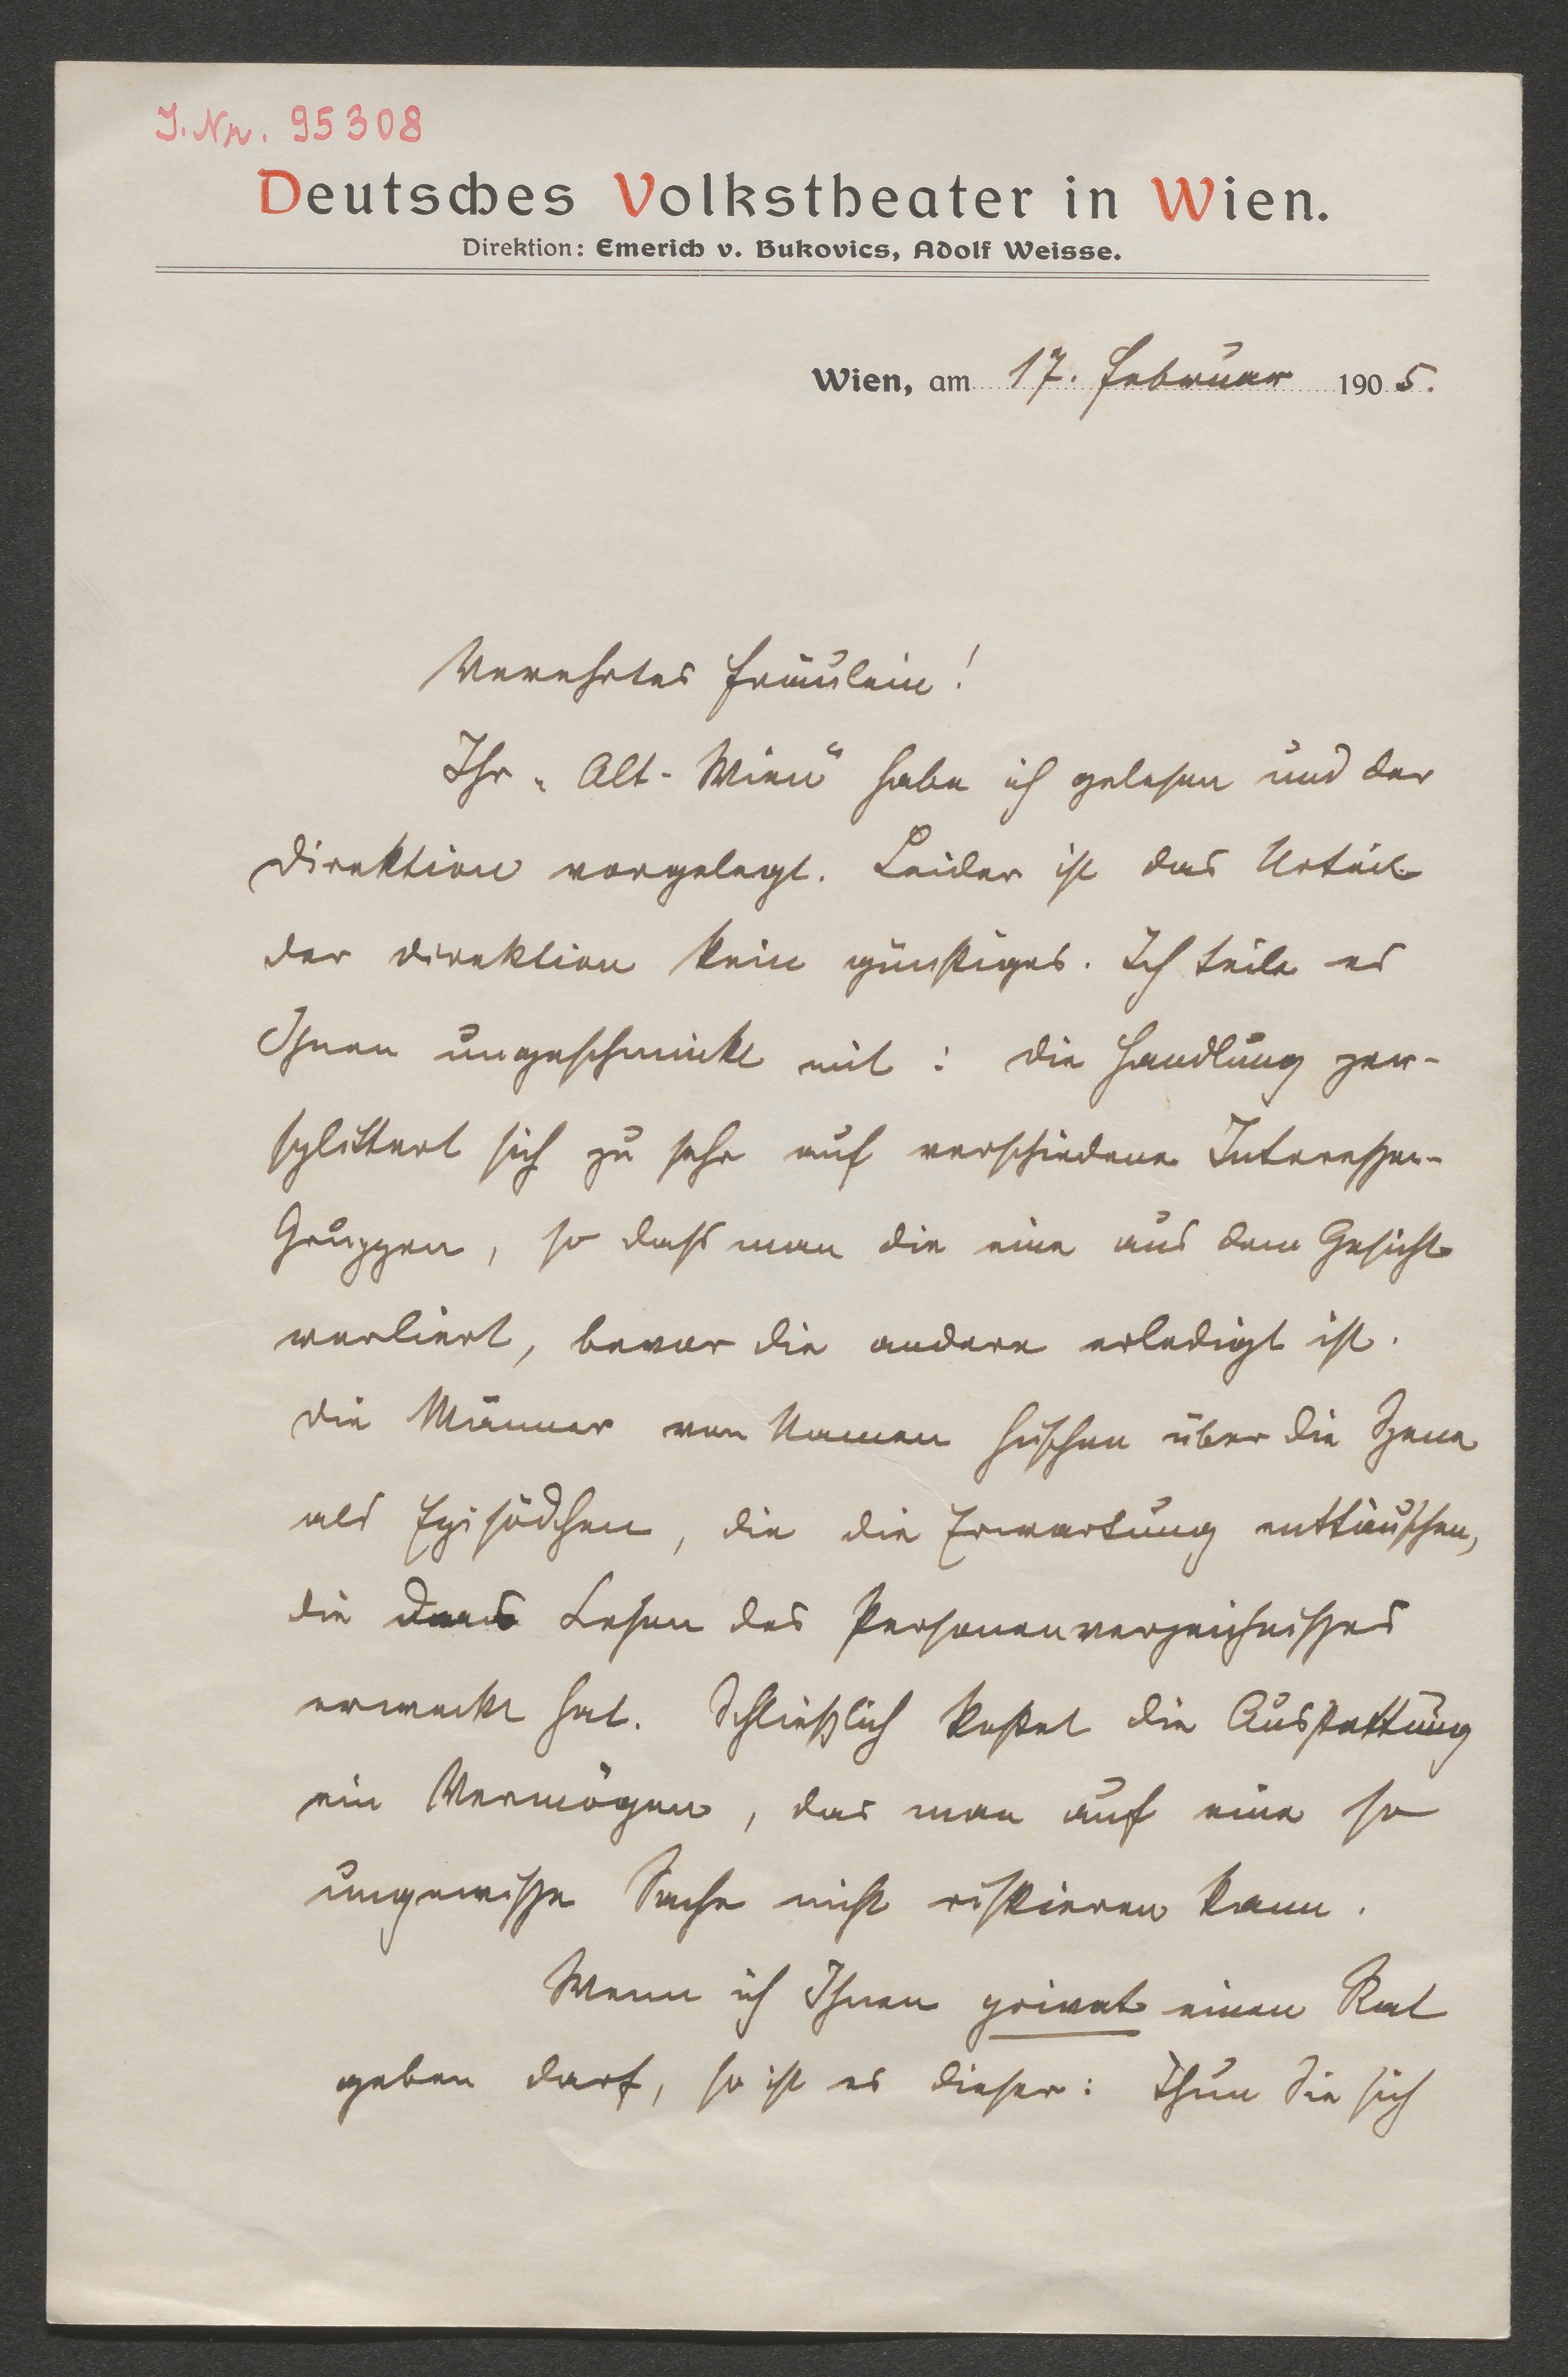 J. Nr. 95308
Deutsches Volkstheater in Wien.
Direktion: Emerich v. Bukovics, Adolf Weisse.
Wien, am 17. Februar 1905.
Verehrtes Fräulein!
Ihr „Alt-Wien“ habe ich gelesen und der
Direktion vorgelegt. Leider ist das Urteil
der Direktion kein günstiges. Ich teile es
Ihnen ungeschminkt mit: Die Handlung zer-
splittert sich zu sehr auf verschiedene Interessen-
Gruppen, so dass man die eine aus dem Gesicht
verliert, bevor die andere erledigt ist.
Die Männer von Namen huschen über die Szene
als Episödchen, die die Erwartung enttäuschen,
die das Lesen des Personenverzeichnisses
erweckt hat. Schließlich kostet die Ausstattung
ein Vermögen, das man auf eine so
ungewisse Sache nicht riskieren kann.
Wenn ich Ihnen privat einen Rat
geben darf, so ist es dieser: Thun Sie sich